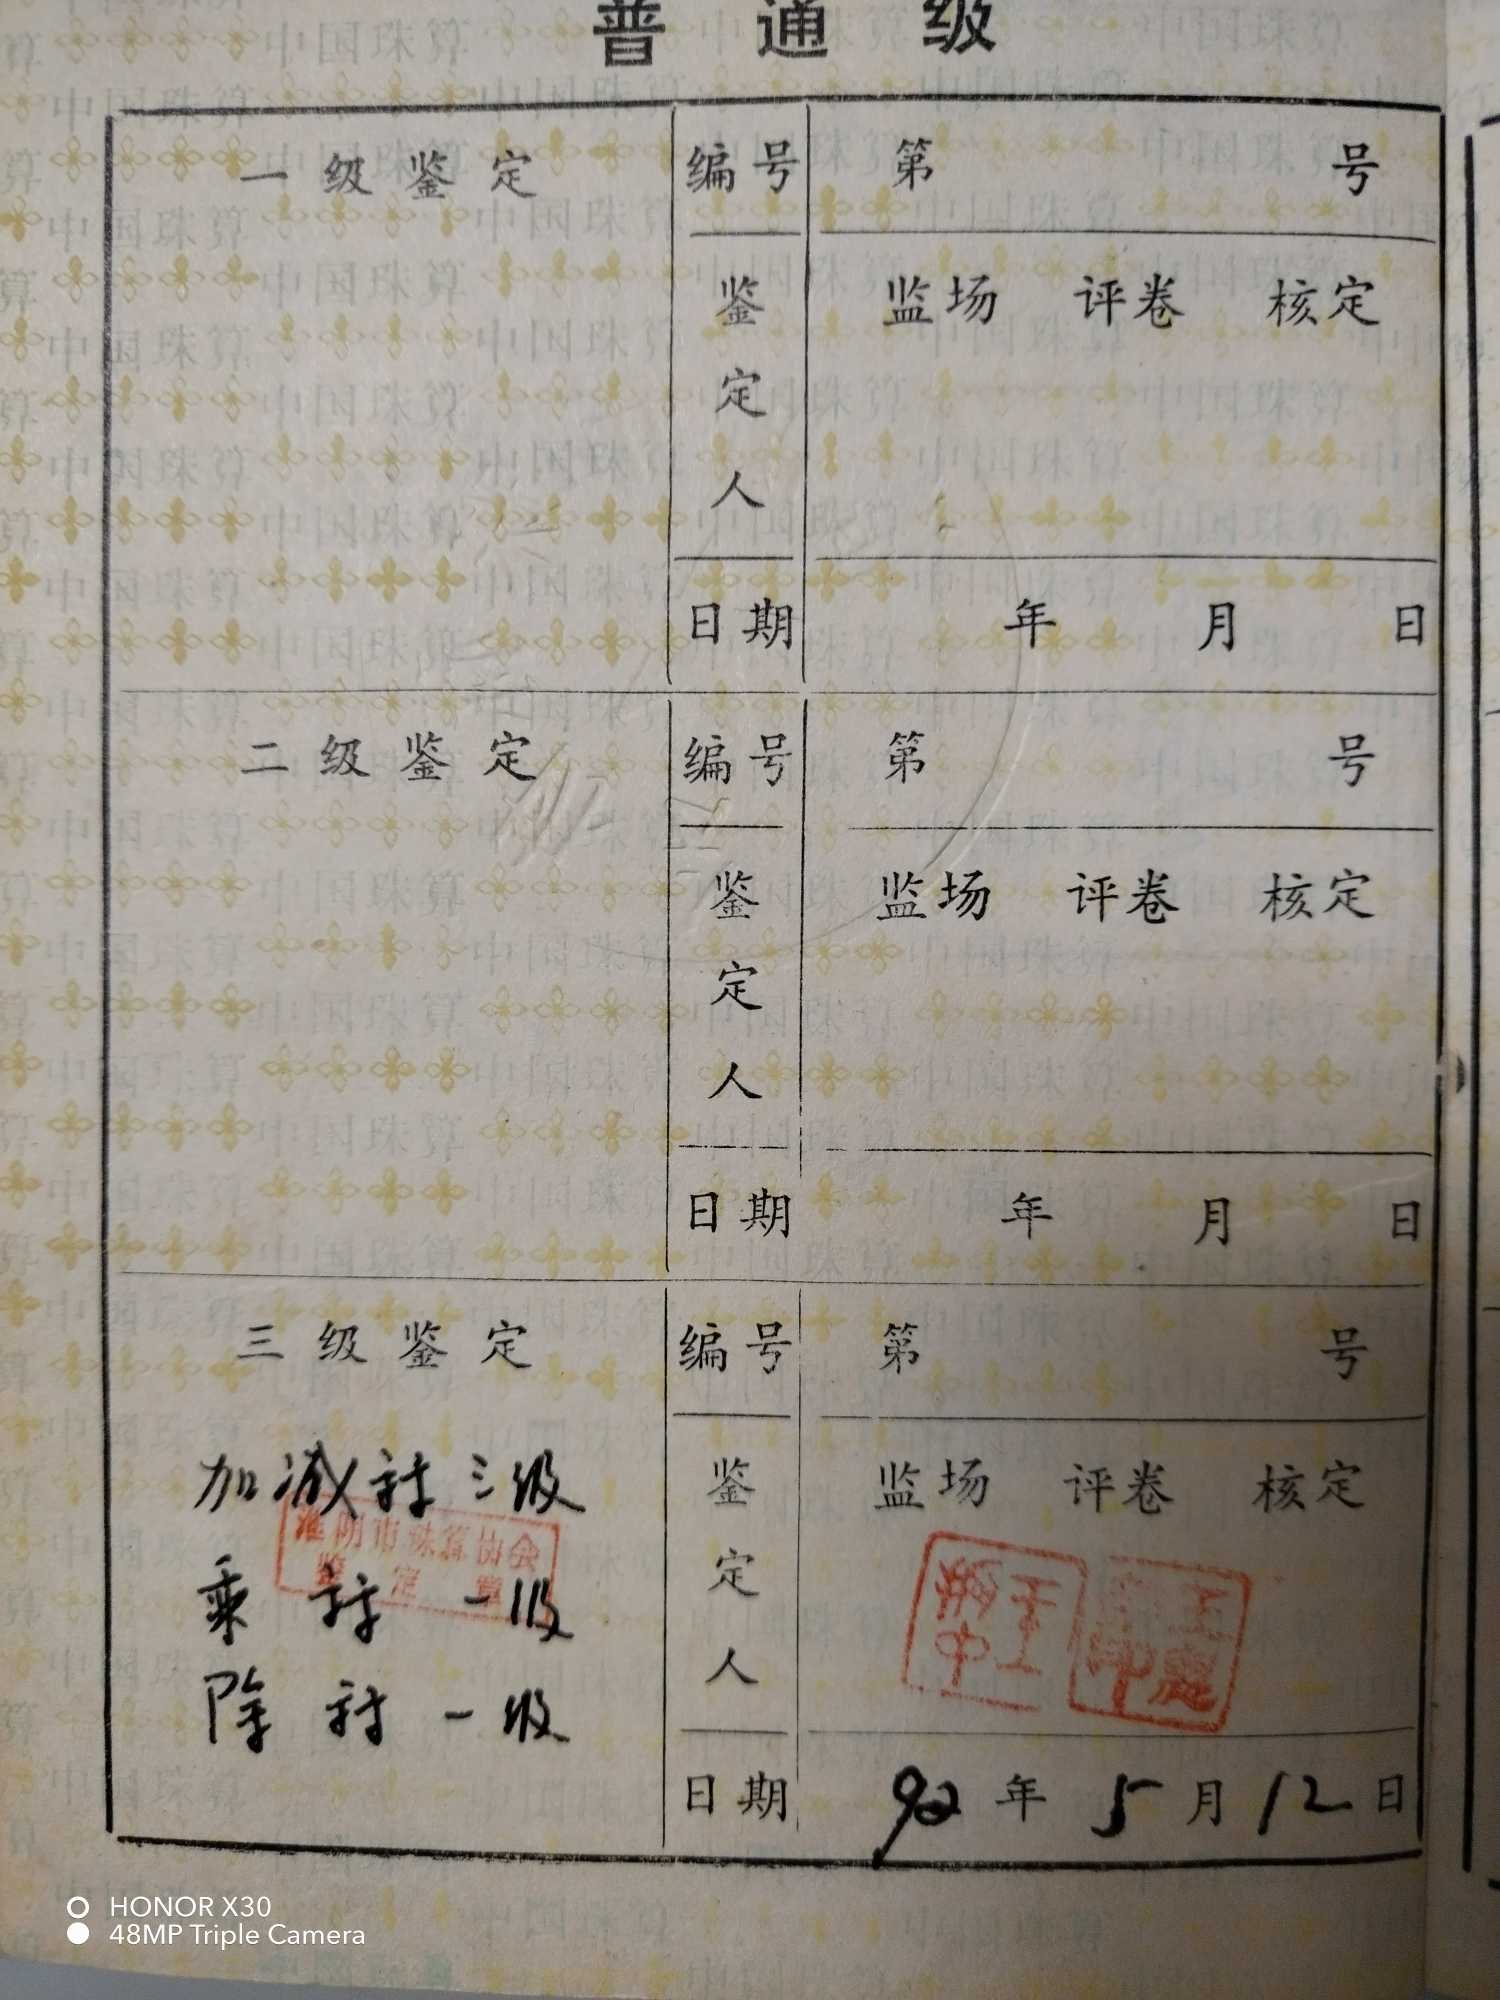 普通级
一级鉴定 编号 第 号
鉴定人 监场 评卷 核定
日期 年 月 日
二级鉴定 编号 第 号
鉴定人 监场 评卷 核定
日期 年 月 日
三级鉴定 编号 第 号
加减 三级
淮阴市珠算协会
鉴定章
乘 一级
除 一级
鉴定人 监场 评卷 核定
日期 92年5月12日
HONOR X30
48MP Triple Camera